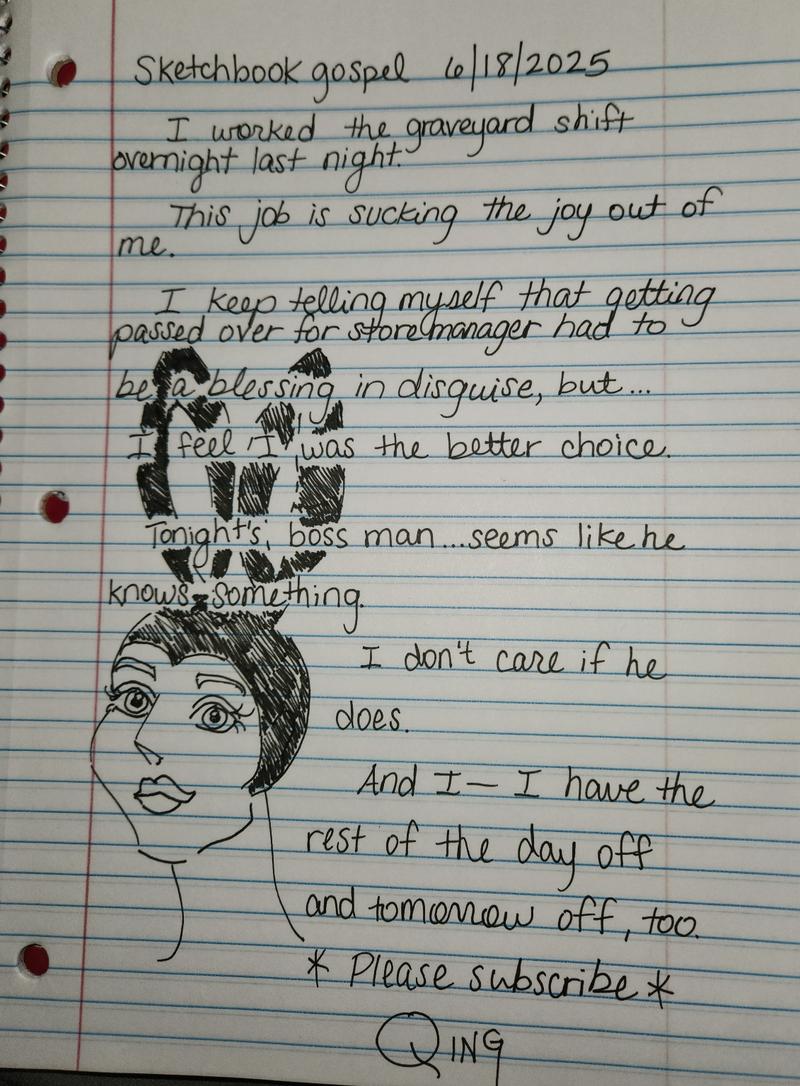 Sketchbook gospel 6/18/2025
I worked the graveyard shift
overnight last night.
This job is sucking the joy out of
me.
I keep telling myself that getting
passed over for store manager had to
be a blessing in disguise, but...
I feel I was the better choice.
Tonight's boss man...seems like he
knows something.
I don't care if he
does.
And I— I have the
rest of the day off
and tomorrow off, too.
* Please subscribe *
QING